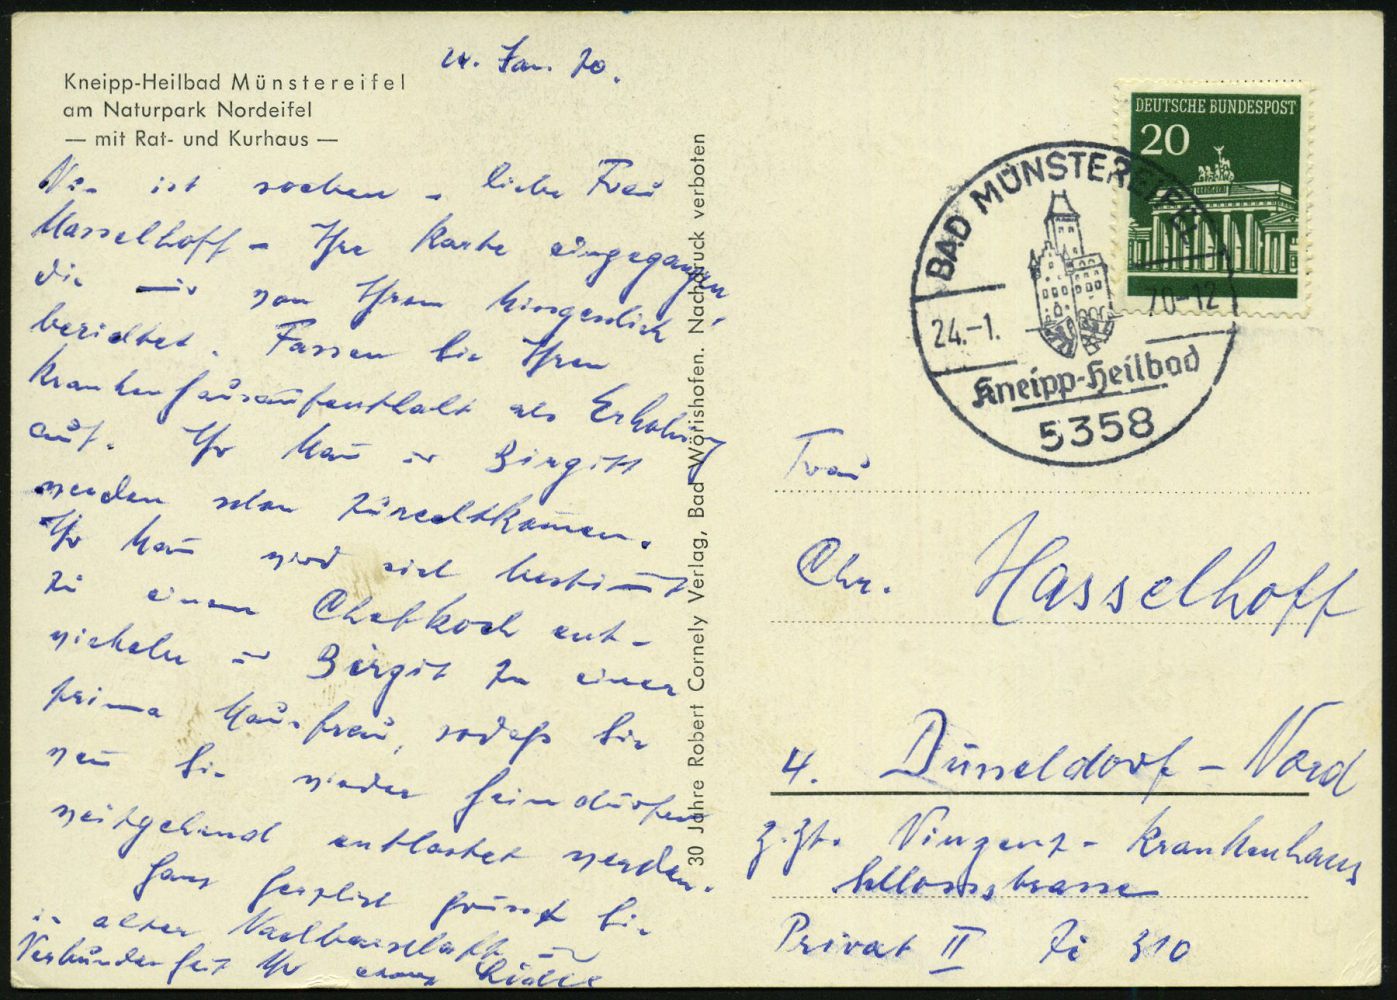 24. Jan. 70.
Kneipp-Heilbad Münstereifel
am Naturpark Nordeifel
— mit Rat- und Kurhaus —
ist soeben - liebe Frau
Hasselhoff - Ihre Karte eingegangen,
die mir von Ihrem
berichtet. Fassen Sie Ihren
Krankenhausaufenthalt als Erholung
auf. Ihr Mann u Birgitt
werden schon zurechtkommen.
Ihr Mann wird sich bestimmt
zu einem Chefkoch ent-
wickeln u Birgit zu einer
prima Hausfrau, sodaß Sie
wenn Sie wieder heim dürfen
weitgehend entlastet werden.
Ganz herzlich grüsst Sie
in alter Nachbarschaft u
Verbundenheit Ihr
30 Jahre Robert Cornely Verlag, Bad Wörishofen. Nachdruck verboten
DEUTSCHE BUNDESPOST
20
BAD MÜNSTEREIFEL
24.-1. 70-12
Kneipp-Heilbad
5358
Frau
Chr. Hasselhoff
4. Düsseldorf - Nord
z.Zt. Vinzenz-Krankenhaus
Schlossstrasse
Privat II Zi 310